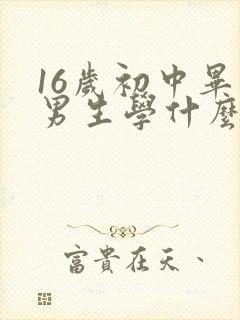 16歲初中畢
男生學什麼
富貴在天、